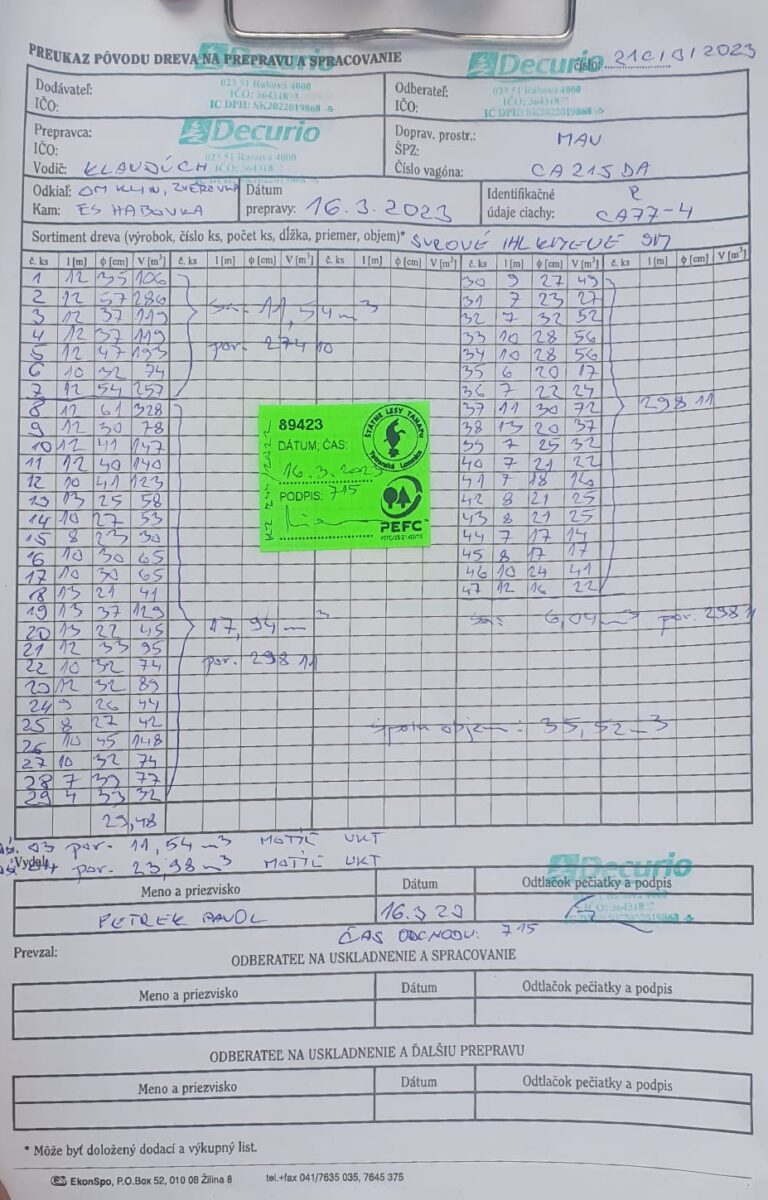 PREUKAZ PÔVODU DREVA NA PREPRAVU A SPRACOVANIE
Decurio
Decurio
číslo: 210/3/2023
Dodávateľ:
IČO:
023 51 Raková 1000
IČO:
IC DPH: SK2022019868 -6-
Odberateľ:
IČO:
023 51 Raková 1000
IČO: 364318
IC DPH: SK2022019868 -6-
Prepravca:
IČO:
Vodič: KLAUDÚCH
Decurio
023 51 Raková 1000
Doprav. prostr.: MAN
ŠPZ:
Číslo vagóna: CA 215 DA
Odkiaľ: OM KLIN, ZVEROVKA
Kam: ES HABOVKA
Dátum
prepravy: 16.3.2023
Identifikačné
údaje ciachy: R
CA77-4
Sortiment dreva (výrobok, číslo ks, počet ks, dĺžka, priemer, objem)* SUROVÉ IHL KMENE
č. ks l [m] ϕ [cm] V [m³] č. ks l [m] ϕ [cm] V [m³] č. ks l [m] ϕ [cm] V [m³] č. ks l [m] ϕ [cm] V [m³] č. ks l [m] ϕ [cm] V [m³]
1 12 35 106 30 9 27 49
2 12 57 286 31 7 23 27
3 12 37 119 11,54 m³ 32 7 32 52
4 12 37 119 33 10 28 56
5 12 47 193 por. 274 10 34 10 28 56
6 10 32 74 35 6 20 17
7 12 54 257 36 7 22 24
8 12 61 328 37 11 30 72 298 11
9 12 30 78 38 13 20 37
10 12 41 147 39 7 25 32
11 12 40 140 40 7 21 22
12 10 41 123 41 7 18 16
13 13 25 58 42 8 21 25
14 10 27 53 43 8 21 25
15 8 23 30 44 7 17 14
16 10 30 65 45 8 17 17
17 10 30 65 46 10 24 41
18 13 21 41 47 12 16 22
19 13 37 129
20 13 22 45 17,94 m³ 6,04 m³ por. 298 11
21 12 33 95
22 10 32 74 por. 298 11
23 12 32 89
24 9 26 44
25 8 27 42 spolu objem: 35,52 m³
26 10 45 148
27 10 32 74
28 7 39 77
29 4 33 32
29,48
89423
DÁTUM; ČAS:
16.3.2023
PODPIS: 715
ŠTÁTNE LESY TANAPU
Tatranská Lomnica
PEFC
03 por. 11,54 m³ MOTÍĽ UKT
04 por. 23,98 m³ MOTÍĽ UKT
Vydal:
Decurio
Meno a priezvisko Dátum Odtlačok pečiatky a podpis
PETREK PAVOL 16.3 23
ČAS ODCHODU: 715
Prevzal:
ODBERATEĽ NA USKLADNENIE A SPRACOVANIE
Meno a priezvisko Dátum Odtlačok pečiatky a podpis
ODBERATEĽ NA USKLADNENIE A ĎALŠIU PREPRAVU
Meno a priezvisko Dátum Odtlačok pečiatky a podpis
* Môže byť doložený dodací a výkupný list.
EkonSpo, P.O.Box 52, 010 08 Žilina 8 tel.+fax 041/7635 035, 7645 375